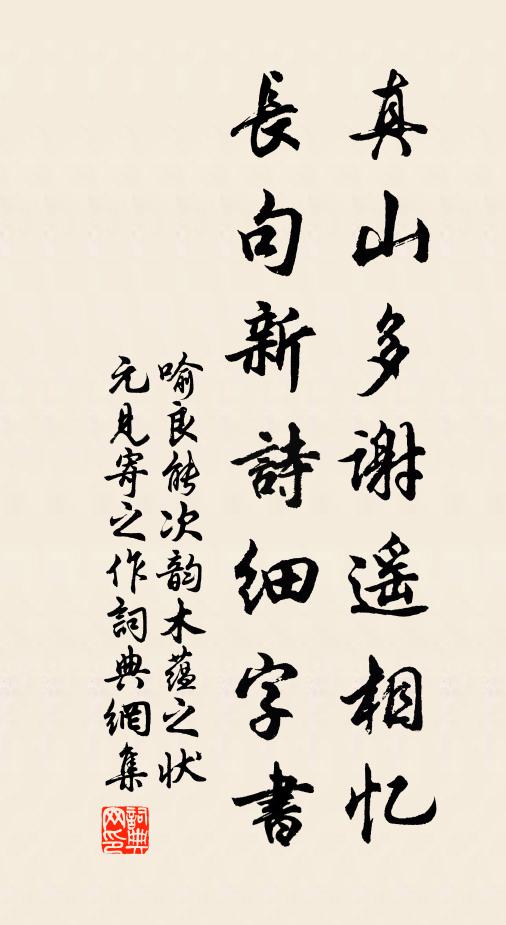 真山多谢遥相忆
長句新詩细字書
喻良能次韵木蕴之状
元见寄之作詞典網集
詞典
网印